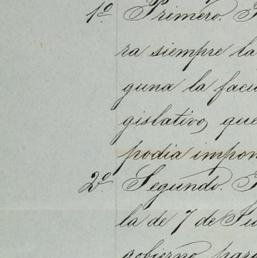 1º Primero.
ra siempre la
guna la facu
gislativo, que
podia impon
2º Segundo.
la de 7 de Ju
gobierno para